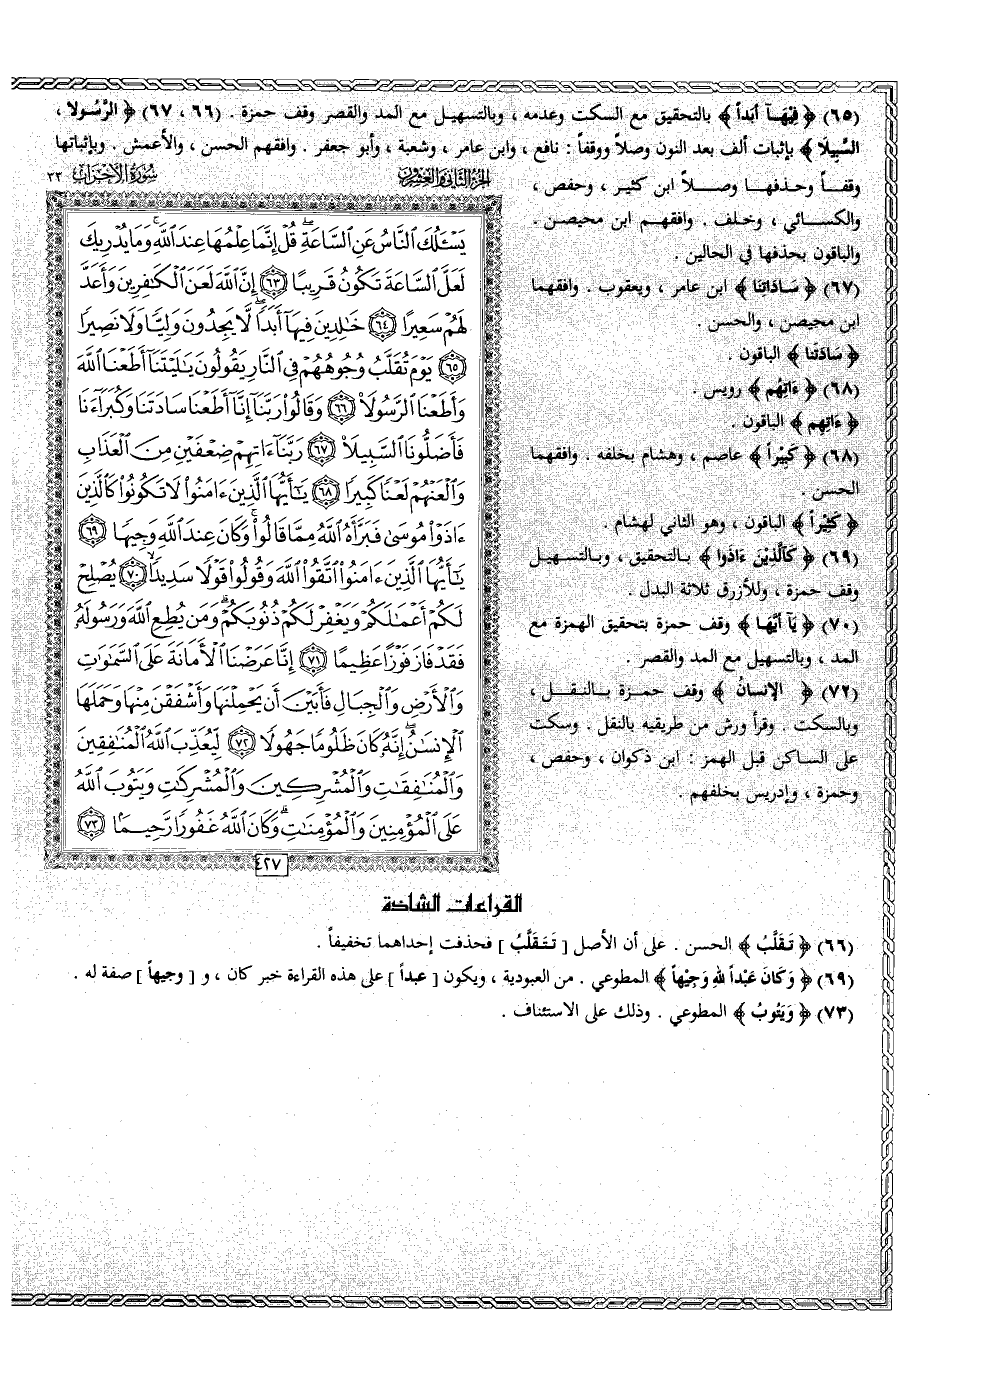 (٦٥) ﴿ فِيْهَآ أَبَداً ﴾ بالتحقيق مع السكت وعدمه ، وبالتسهيل مع المد والقصر وقف حمزة . (٦٦ ، ٦٧) ﴿ الرَّسُولا ،
السَّبِيلَا ﴾ بإثبات ألف بعد النون وصلاً ووقفاً : نافع ، وابن عامر ، وشعبة ، وأبو جعفر . وافقهم الحسن ، والأعمش . وبإثباتها
وقفاً وحذفها وصلاً ابن كثير ، وحفص ،
والكسائي ، وخلف . وافقهم ابن محيصن .
والباقون بحذفها في الحالين .
(٦٧) ﴿ سَادَاتِنَا ﴾ ابن عامر ، ويعقوب . وافقهما
ابن محيصن ، والحسن .
﴿ سَادَتَنَا ﴾ الباقون .
(٦٨) ﴿ ءَاتِهُم ﴾ رويس .
﴿ ءَاتِهِم ﴾ الباقون .
(٦٨) ﴿ كَبِيْراً ﴾ عاصم ، وهشام بخلفه . وافقهما
الحسن .
﴿ كَثِيْراً ﴾ الباقون ، وهو الثاني لهشام .
(٦٩) ﴿ كَالَّذِيْنَ ءَاذَوا ﴾ بالتحقيق ، وبالتسهيل
وقف حمزة ، وللأزرق ثلاثة البدل .
(٧٠) ﴿ يَآ أَيُّهَا ﴾ وقف حمزة بتحقيق الهمزة مع
المد ، وبالتسهيل مع المد والقصر .
(٧٢) ﴿ الإِنسانُ ﴾ وقف حمزة بالنقل ،
وبالسكت . وقرأ ورش من طريقيه بالنقل . وسكت
على الساكن قبل الهمز : ابن ذكوان ، وحفص ،
وحمزة ، وإدريس بخلفهم .
الجزء الثاني والعشرون سُورَةُ الأَحْزَاب ٣٣
يَسْـَٔلُكَ ٱلنَّاسُ عَنِ ٱلسَّاعَةِۖ قُلْ إِنَّمَا عِلْمُهَا عِندَ ٱللَّهِۚ وَمَا يُدْرِيكَ
لَعَلَّ ٱلسَّاعَةَ تَكُونُ قَرِيبًا ٦٣ إِنَّ ٱللَّهَ لَعَنَ ٱلْكَٰفِرِينَ وَأَعَدَّ
لَهُمْ سَعِيرًا ٦٤ خَٰلِدِينَ فِيهَآ أَبَدًاۖ لَّا يَجِدُونَ وَلِيًّا وَلَا نَصِيرًا
٦٥ يَوْمَ تُقَلَّبُ وُجُوهُهُمْ فِي ٱلنَّارِ يَقُولُونَ يَٰلَيْتَنَآ أَطَعْنَا ٱللَّهَ
وَأَطَعْنَا ٱلرَّسُولَا۠ ٦٦ وَقَالُوا۟ رَبَّنَآ إِنَّآ أَطَعْنَا سَادَتَنَا وَكُبَرَآءَنَا
فَأَضَلُّونَا ٱلسَّبِيلَا۠ ٦٧ رَبَّنَآ ءَاتِهِمْ ضِعْفَيْنِ مِنَ ٱلْعَذَابِ
وَٱلْعَنْهُمْ لَعْنًا كَبِيرًا ٦٨ يَٰٓأَيُّهَا ٱلَّذِينَ ءَامَنُوا۟ لَا تَكُونُوا۟ كَٱلَّذِينَ
ءَاذَوْا۟ مُوسَىٰ فَبَرَّأَهُ ٱللَّهُ مِمَّا قَالُوا۟ۚ وَكَانَ عِندَ ٱللَّهِ وَجِيهًا ٦٩
يَٰٓأَيُّهَا ٱلَّذِينَ ءَامَنُوا۟ ٱتَّقُوا۟ ٱللَّهَ وَقُولُوا۟ قَوْلًا سَدِيدًا ٧٠ يُصْلِحْ
لَكُمْ أَعْمَٰلَكُمْ وَيَغْفِرْ لَكُمْ ذُنُوبَكُمْۗ وَمَن يُطِعِ ٱللَّهَ وَرَسُولَهُۥ
فَقَدْ فَازَ فَوْزًا عَظِيمًا ٧١ إِنَّا عَرَضْنَا ٱلْأَمَانَةَ عَلَى ٱلسَّمَٰوَٰتِ
وَٱلْأَرْضِ وَٱلْجِبَالِ فَأَبَيْنَ أَن يَحْمِلْنَهَا وَأَشْفَقْنَ مِنْهَا وَحَمَلَهَا
ٱلْإِنسَٰنُۖ إِنَّهُۥ كَانَ ظَلُومًا جَهُولًا ٧٢ لِّيُعَذِّبَ ٱللَّهُ ٱلْمُنَٰفِقِينَ
وَٱلْمُنَٰفِقَٰتِ وَٱلْمُشْرِكِينَ وَٱلْمُشْرِكَٰتِ وَيَتُوبَ ٱللَّهُ
عَلَى ٱلْمُؤْمِنِينَ وَٱلْمُؤْمِنَٰتِۗ وَكَانَ ٱللَّهُ غَفُورًا رَّحِيمًا ٧٣
٤٢٧
القراءات الشاذة
(٦٦) ﴿ تَقَلَّبُ ﴾ الحسن . على أن الأصل [ تَتَقَلَّبُ ] فحذفت إحداهما تخفيفاً .
(٦٩) ﴿ وَكَانَ عَبْداً للهِ وَجِيْهاً ﴾ المطوعي . من العبودية ، ويكون [ عبداً ] على هذه القراءة خبر كان ، و [ وجيهاً ] صفة له .
(٧٣) ﴿ وَيَتُوبُ ﴾ المطوعي . وذلك على الاستئناف .